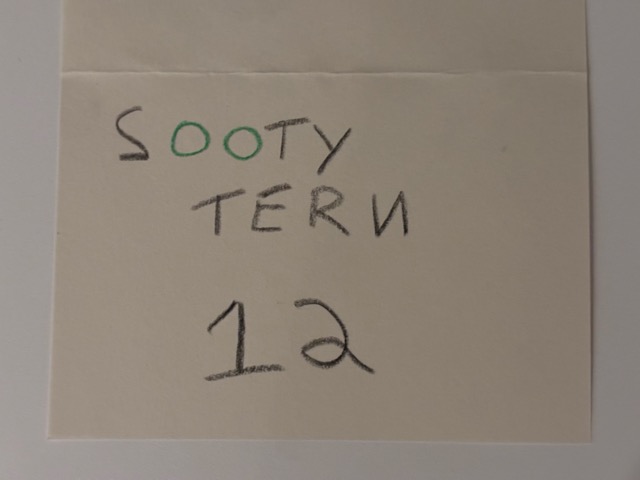 SOOTY
TERN
12